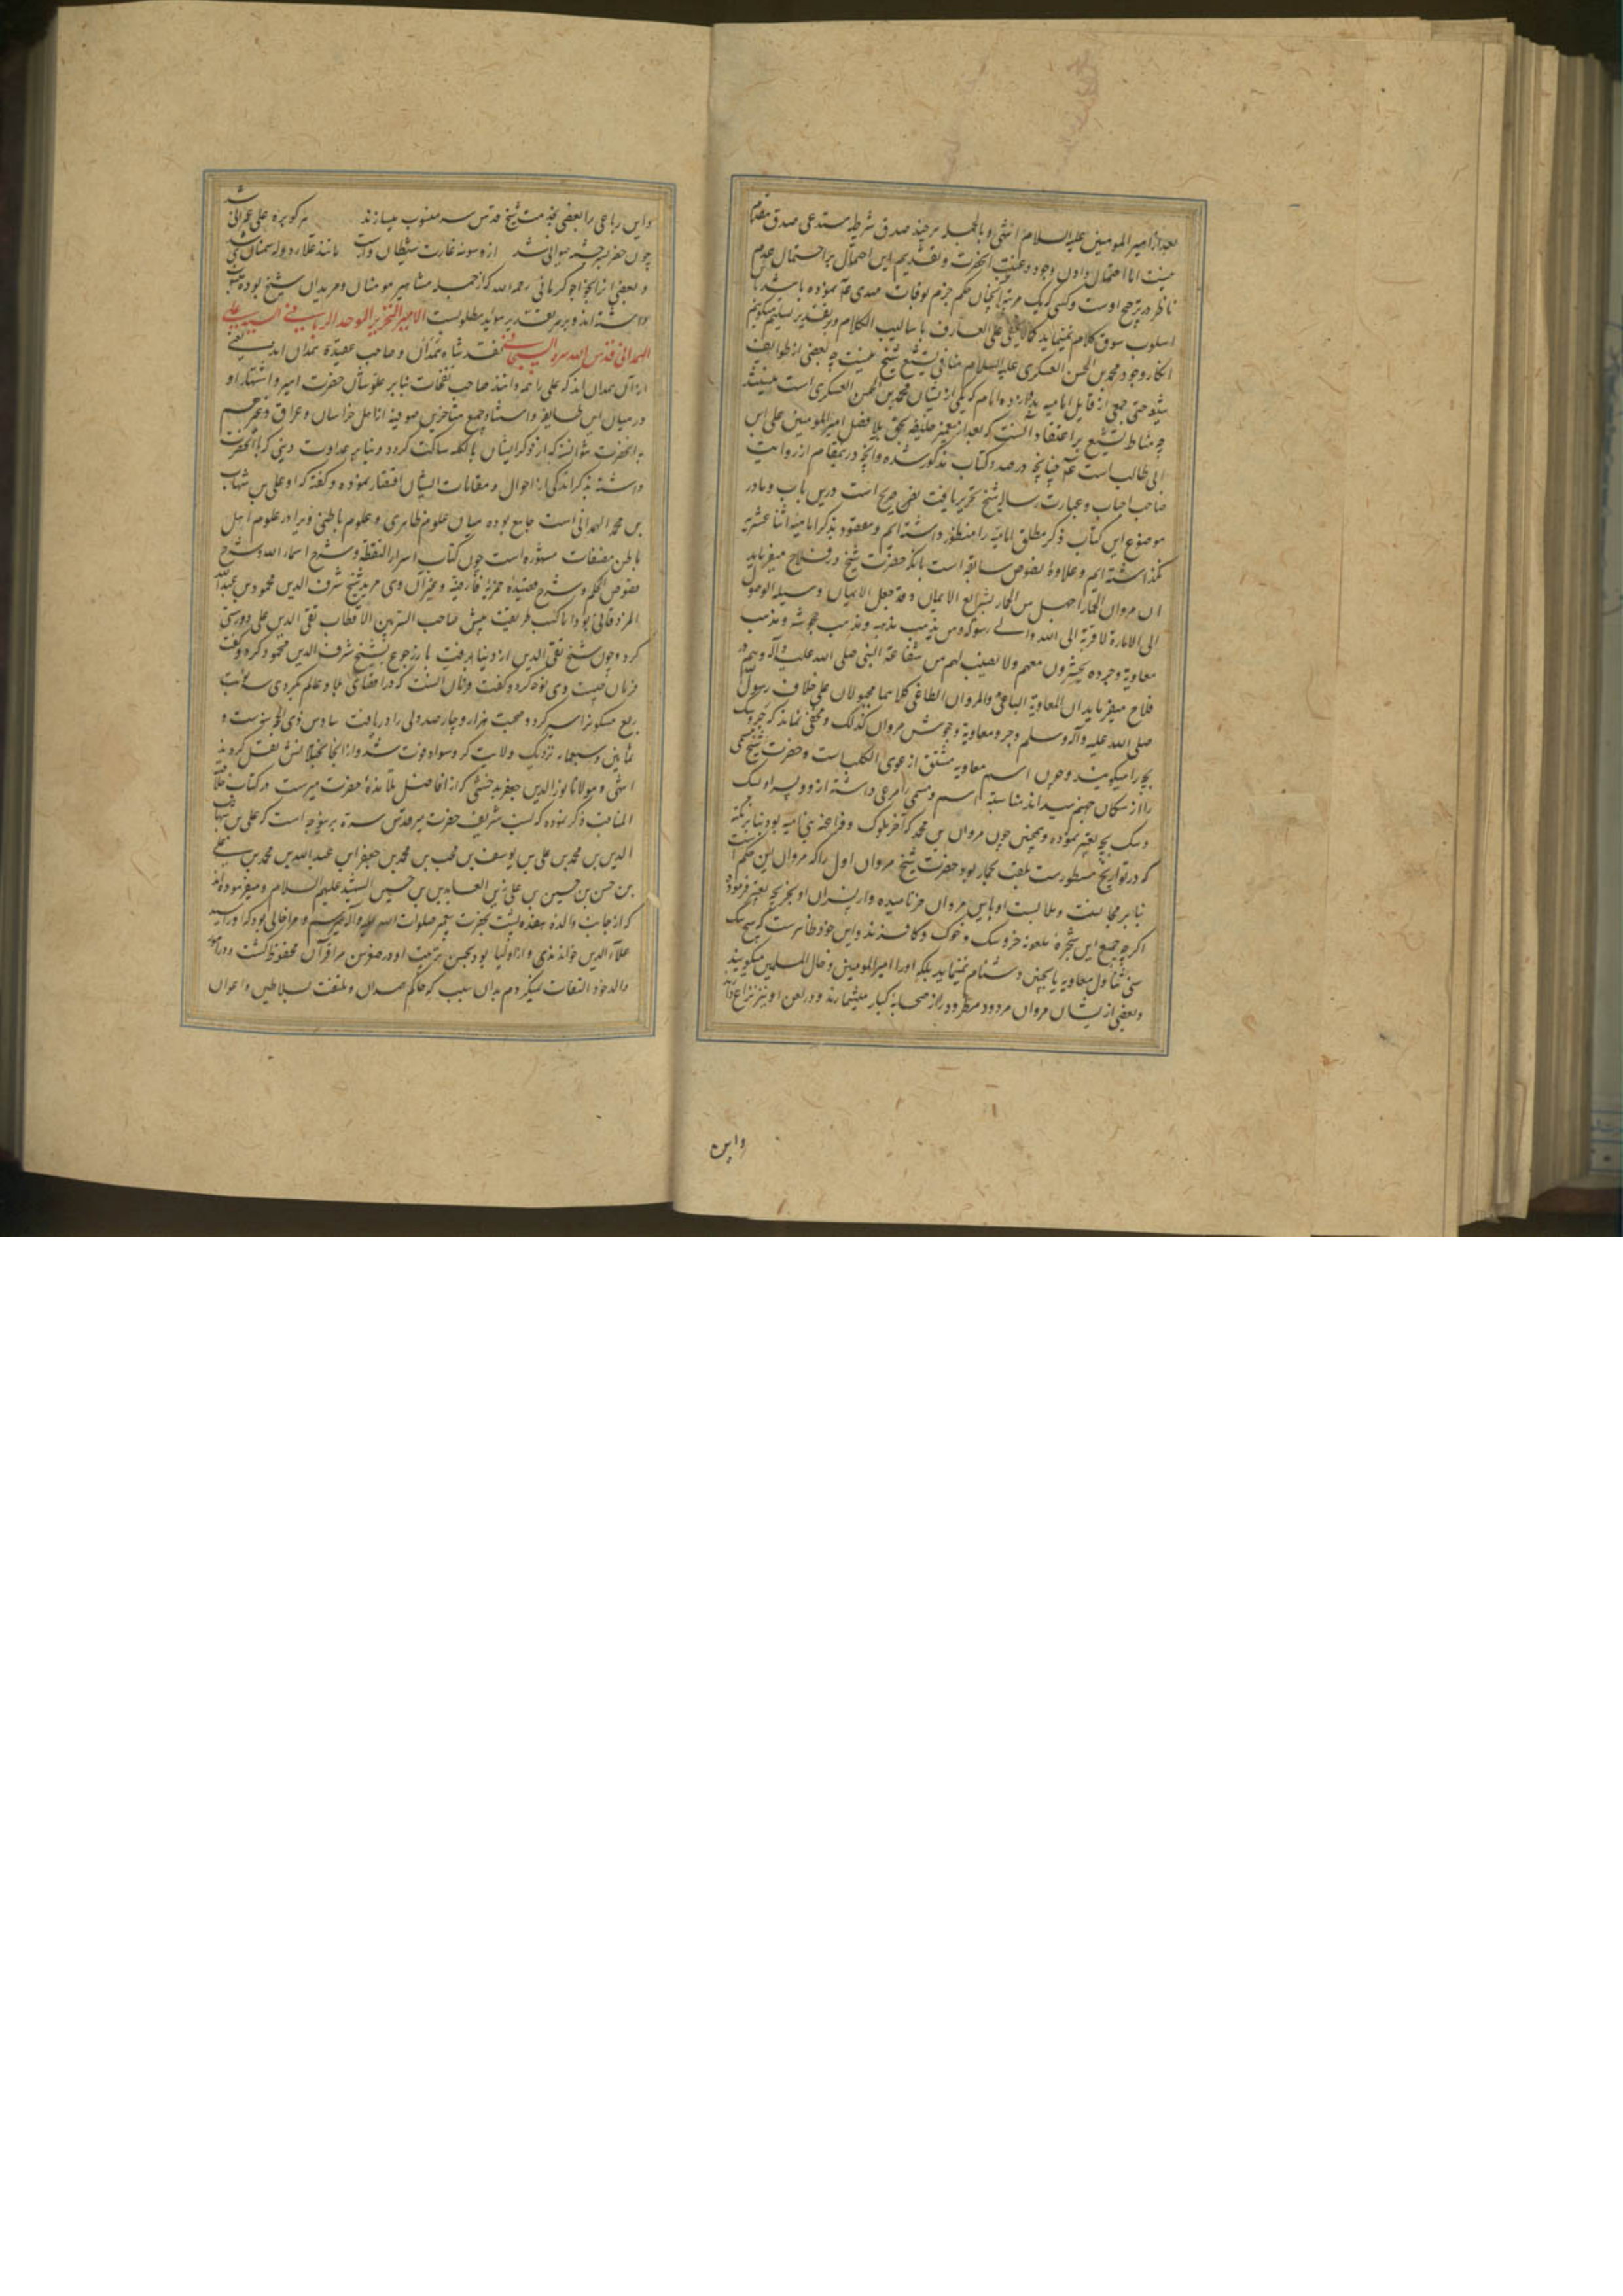 بعد از امیر المومنین علیه السلام انتهی و بالجمله هر چند صدق شرطیه مستدعی صدق مقدم
نیست اما احتمال دادن وجود و غیبت آنحضرت و تقدیم این احتمال بر احتمال عدم
ناظر در ترجیح اوست و کسی که یک مرتبه آنچنان حکم جزم بوفات مهدی عم نموده باشد با
اسلوب سوق کلام نمینماید کما لا یخفی علی العارف باسالیب الکلام و بر تقدیر تسلیم میگوئیم
انکار وجود محمد بن الحسن العسکری علیه السلام منافی تشیع شیخ نیست چه بعضی از طوایف
شیعه حتی جمعی از قایل امامیه بدوازده امام که یکی از ایشان محمد بن الحسن العسکری است نیستند
چه مناط تشیع بر اعتقاد آنست که بعد از پیغمبر خلیفه بحق بلا فصل امیر المومنین علی ابن
ابی طالب است عم چنانچه در صدر کتاب مذکور شده و آنچه در مقام از روایت
صاحب احباب و عبارت رساله شیخ تحریر یافت نص صریح است درین باب و ما در
موضوع این کتاب ذکر مطلق امامیه را منظور داشته ایم و معقود بذکر امامیه اثنا عشریه
نگذاشته ایم و علاوه نصوص سابقه است بآنکه حضرت شیخ در فلاح میفرماید
ان مروان الحمار اجهل من الحمار بشرایع الایمان و قد جعل الایمان وسیله الوصول
الی الاماره لا قربة الی الله و الی رسوله و من یذهب مذهبه و مذهب جروشه و مذهب
معاویة و جروه یحشرون معهم و لا نصیب لهم من شفاعة النبی صلی الله علیه و آله و هم در
فلاح میفرماید ان المعاویة الباغی و المروان الطاغی کلاهما مجبولان علی خلاف رسول
صلی الله علیه و آله وسلم و جرو معاویة و جوش مروان کذلک و مخفی نماند که جرو سک
بچه را میگویند و چون اسم معاویه مشتق از عوی الکلب است و حضرت شیخ مسمی
را از سکان جهنم میداند مناسبت اسم و مسمی را مرعی داشته از و و پسر او بسک
و سک بچه تعبیر نموده و همچنین چون مروان بن محمد که آخر ملوک و فراعنه بنی امیه بود بنابر نکته
که در تواریخ مسطور است بلقب بحمار بود حضرت شیخ مروان اول را که مروان بن حکم است
بنابر مجانست و ملابست او باین مروان خر نامیده و از پسران او بخر بچه تعبیر فرموده
اکر چه جمیع این شجره ملعونه خر و سک و خوک و کافرند و این خود ظاهر است که هیچ سک
سنی تناول معاویه یا یحیی دشنام نمینماید بلکه او را امیر المومنین و خال المسلمین میکویند
و بعضی از ایشان مروان مردود مطرود را از صحابه کبار میشمارند و در لعن او نیز نزاع دارند
واین
واین رباعی را بعضی بخدمت شیخ قدس سره منسوب میسازند هر کو بره علی عمرانی شد
چون خضر بر چشمه حیوانی شد از وسوسه غارت شیطان وارست مانند علاء دوله سمنانی شد
و بعضی آنرا بخواجو کرمانی رحمه الله که از جمله مشاهیر مومنان و مریدان شیخ بوده منسوب
داشته اند و بر هر تقدیر موید مطلوبست الامیر النحریر الموحد الربانی السید علی
الهمدانی قدس الله سره السبحانی معتقد شاه همدان و صاحب عقیده همدان اند یعنی
از آن همدان اند که علی را همه دانند صاحب نفحات بنابر علو شان حضرت امیر و اشتهار او
در میان این طایفه و استناد جمع متاخرین صوفیه از اهل خراسان و عراق و عجم
به آنحضرت نتوانسته که از ذکر ایشان بالکلیه ساکت کردد و بنا بر عداوت دینی که با آنحضرت
داشته بذکر اندکی از احوال و مقامات ایشان اقتصار نموده و کفته که او علی بن شهاب
بن محمد الهمدانی است جامع بوده میان علوم ظاهری و علوم باطنی و یرا در علوم اهل
باطن مصنفات مشهوره است چون کتاب اسرار النقطه و شرح اسماء الله و شرح
فصوص الحکم و شرح قصیده خمریه فارضیه و غیر آن وی مرید شیخ شرف الدین محمود بن عبدالله
المزدقانی بود اما کسب طریقت پیش صاحب السر بین الاقطاب تقی الدین علی دوستی
کرد و چون شیخ تقی الدین از دنیا برفت باز رجوع بشیخ شرف الدین محمود کرد و گفت
فرمان چیست وی توجه کرد و کفت فرمان آنست که در اقصای بلاد عالم بگردی سه نوبت
ربع مسکون را سیر کرد و صحبت هزار و چهار صد ولی را دریافت سادس ذی الحجه سنه ست و
ثمانین و سبعمایه نزدیک ولایت کبر و سواد فوت شد و از آنجا بختلانش نقل کردند
انتهی و مولانا نور الدین جعفر بدخشی که از افاضل تلامذه حضرت میر است در کتاب خلاصة
المناقب ذکر نموده که نسب شریف حضرت میر قدس سره برینوجه است که علی بن شهاب
الدین بن محمد بن علی بن یوسف بن محب بن محمد بن جعفر ابن عبدالله بن محمد بن علی
بن حسن بن حسین بن علی زین العابدین بن حسین الشهید علیهم السلام و میفرموده اند
که از جانب والده بهفده پشت بحضرت پیغمبر صلوات الله علیه و آله میرسم و مرا خالی بود که او را سید
علاء الدین خواندندی و از اولیا بود بحسن تربیت او در صغر سن مرا قرآن محفوظ کشت و در امور
والد خود التفات نمیکردم بدان سبب که حاکم همدان و ملتفت بسلاطین و اعوان